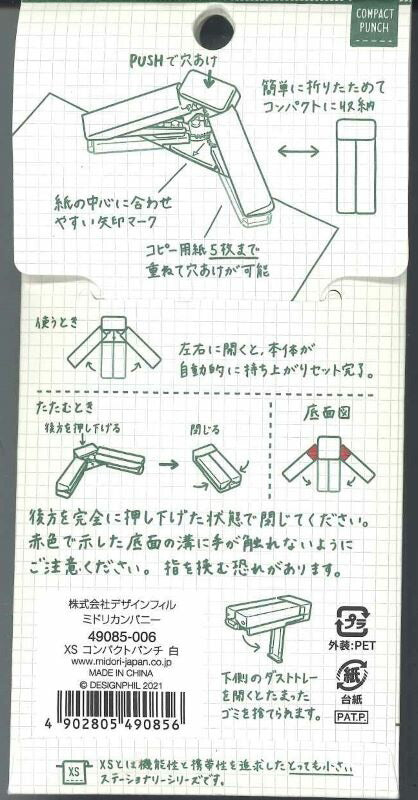 COMPACT
PUNCH
PUSHで穴あけ
簡単に折りたためて
コンパクトに収納
紙の中心に合わせ
やすい矢印マーク
コピー用紙5枚まで
重ねて穴あけが可能
使うとき
左右に開くと、本体が
自動的に持ち上がりセット完了。
たたむとき
後方を押し下げる
閉じる
底面図
後方を完全に押し下げた状態で閉じてください。
赤色で示した底面の溝に手が触れないように
ご注意ください。指を挟む恐れがあります。
株式会社デザインフィル
ミドリカンパニー
49085-006
XS コンパクトパンチ 白
www.midori-japan.co.jp
MADE IN CHINA
© DESIGNPHIL 2021
4 902805 490856
下側のダストトレー
を開くとたまった
ゴミを捨てられます。
プラ
外装:PET
紙
台紙
PAT.P.
XS
XSとは機能性と携帯性を追求したとっても小さい
ステーショナリーシリーズです。